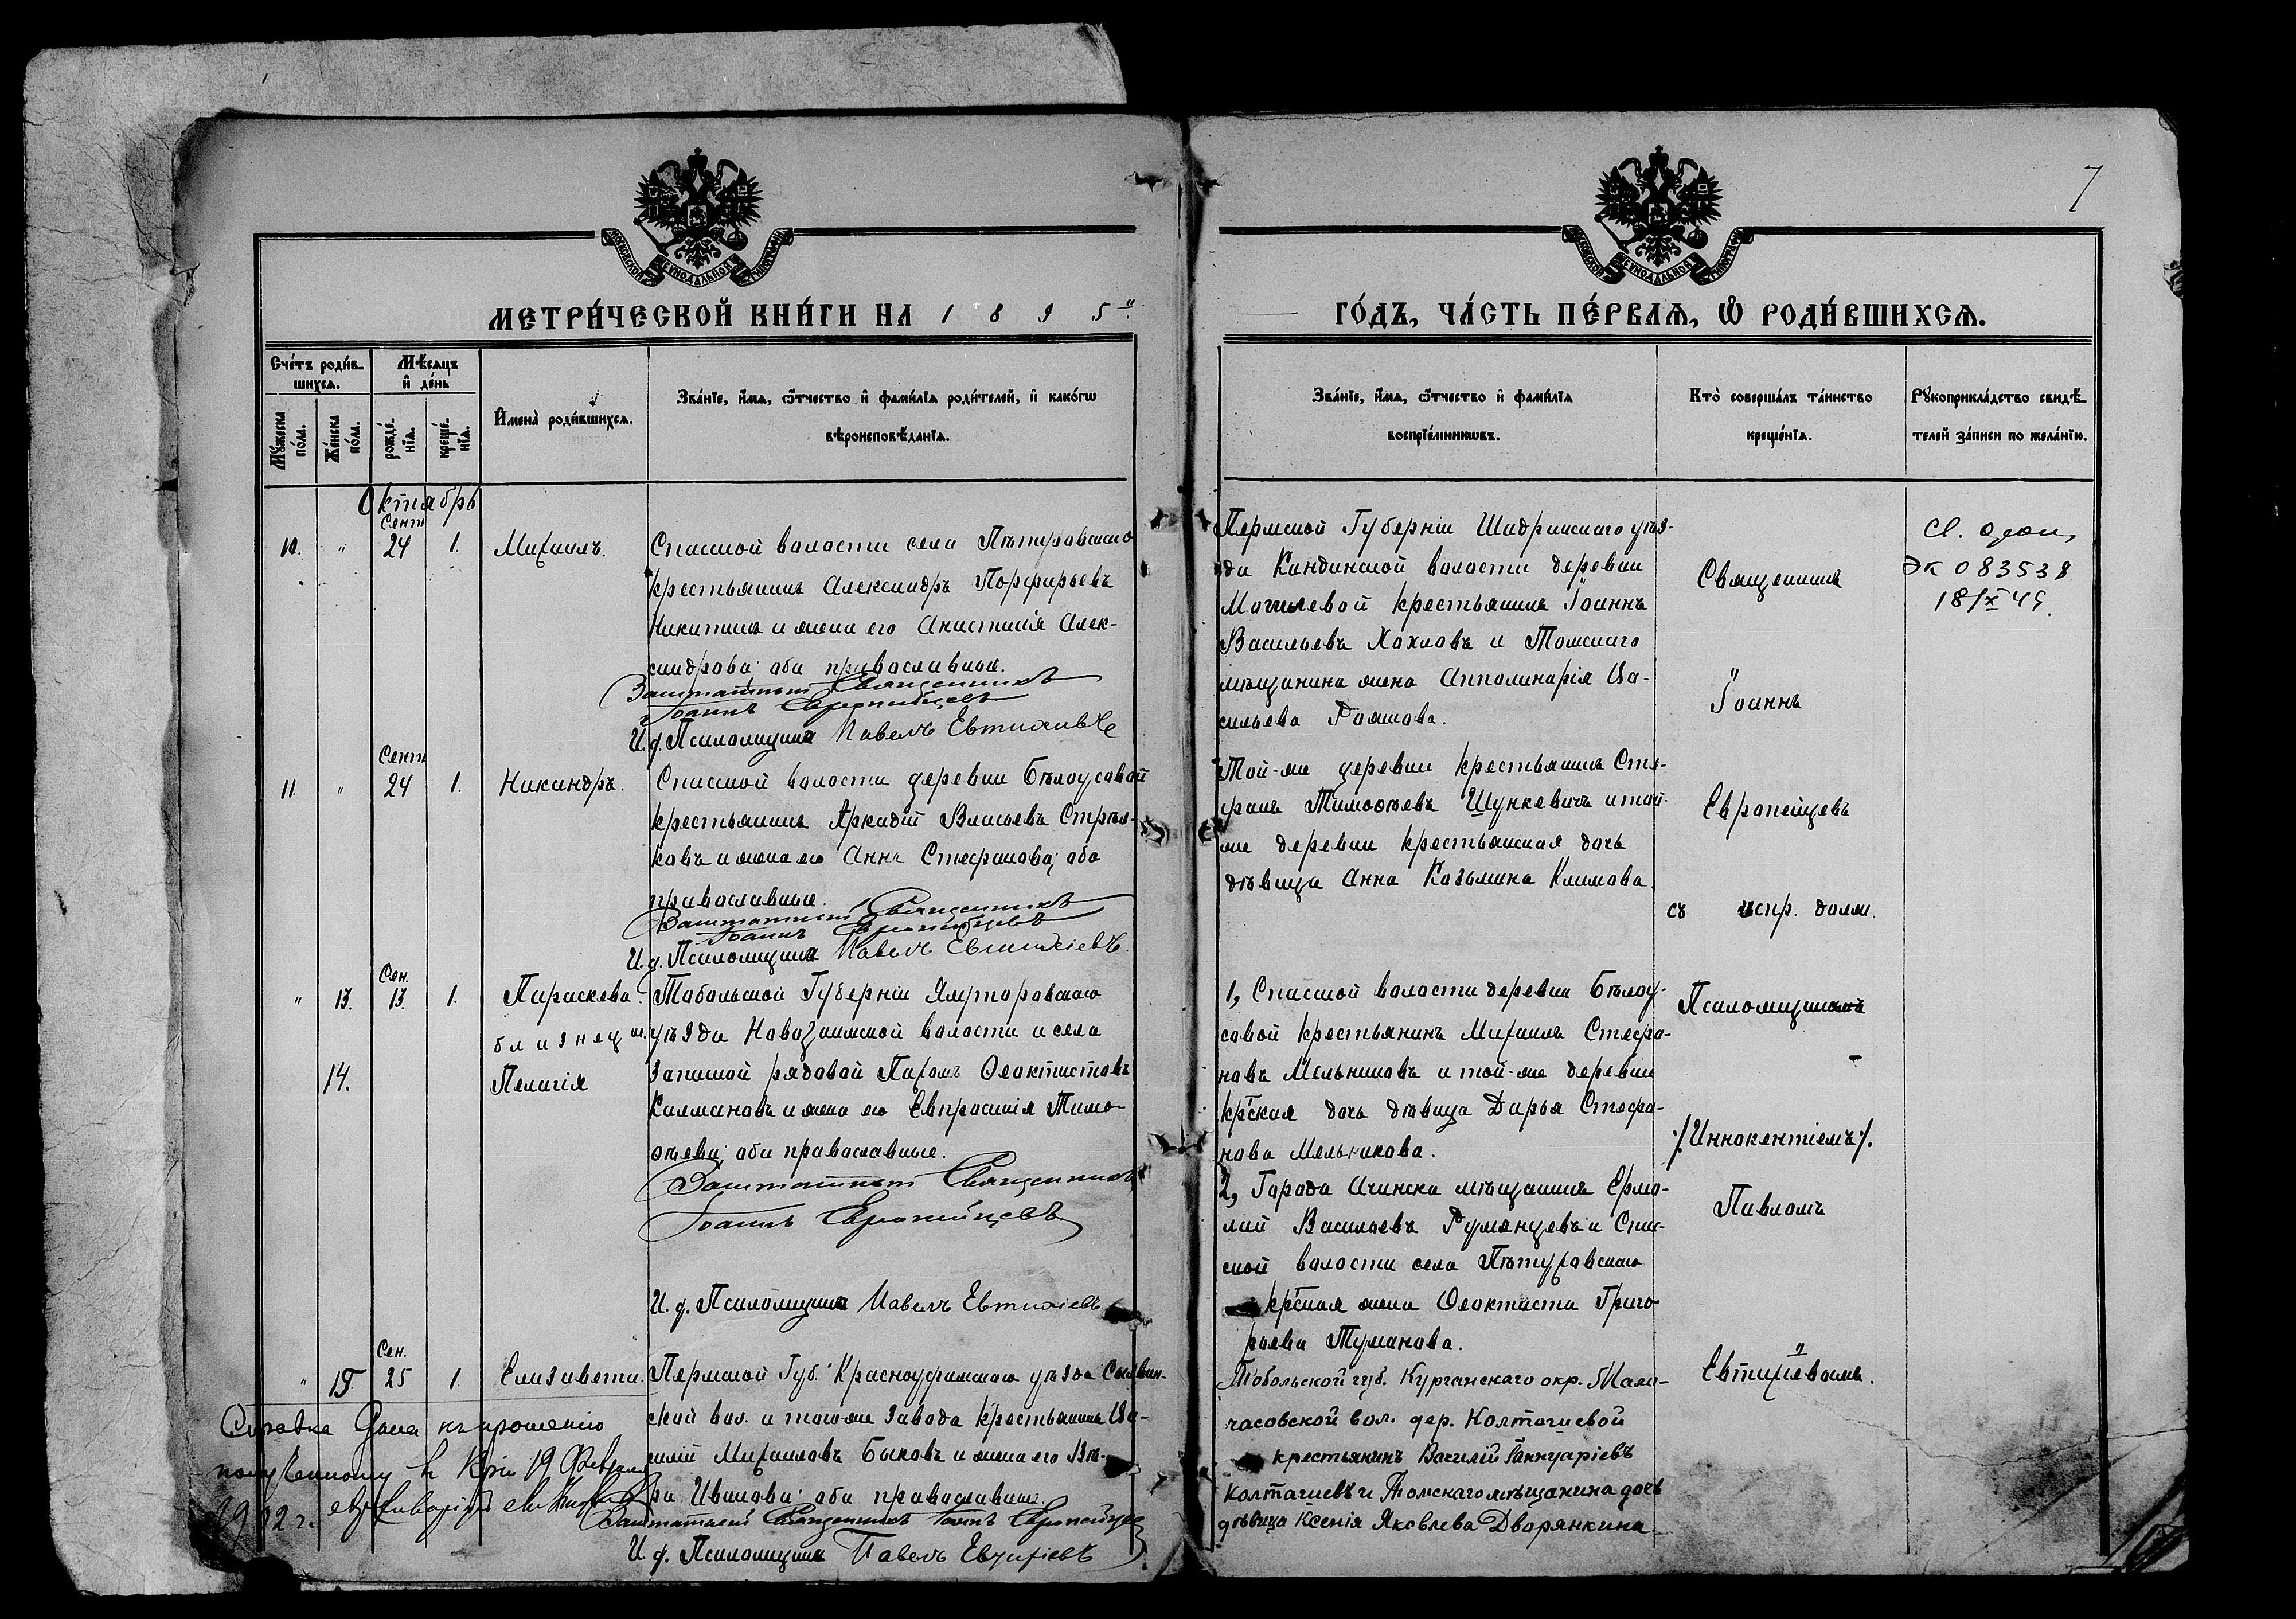 7
МОСКОВСКОЙ СУНОДАЛЬНОЙ ТИПОГРАФІИ
МОСКОВСКОЙ СУНОДАЛЬНОЙ ТИПОГРАФІИ
МЕТРИ́ЧЕСКОЙ КНИ́ГИ НА 1895"
ГО́ДЪ, ЧА́СТЬ ПЕ́РВАѦ, Ѡ҆ РОДИ́ВШИХСѦ.
Сче́тъ роди́в-
шихсѧ.
Мꙋ́жеска по́ла.
Же́нска по́ла.
Мѣ́сѧцъ
и҆ де́нь
рожде́-
нїѧ.
креще́-
нїѧ.
И҆мена̀ роди́вшихсѧ.
Зва́нїе, и҆́мѧ, ѻ҆́тчество и҆ фами́лїѧ роди́телей, и҆ како́гѡ
вѣроисповѣ́данїѧ.
Зва́нїе, и҆́мѧ, ѻ҆́тчество и҆ фами́лїѧ
воспрїе́мникѡвъ.
Кто̀ соверша́лъ та́инство
креще́нїѧ.
Рꙋкоприкла́дство свидѣ́-
телей за́писи по жела́нїю.
Октябрь
Сент
10. " 24 1. Михаилъ.
Спасской волости села Пѣтуховскаго
крестьянинъ Александръ Порфирьевъ
Никитинъ и жена его Анастасія Алек-
сандрова; оба православные.
Заштатный Священникъ
Іоаннъ Европейцевъ
И. д. Псаломщика Павелъ Евтихіевъ
Пермской Губерніи Шадринскаго уѣз-
да Кандинской волости деревни
Могилевой крестьянинъ Іоаннъ
Васильевъ Хохловъ и Томскаго
мѣщанина жена Апполинарія Ва-
сильева
Священникъ
Іоаннъ
Европейцевъ
съ испр. долж.
Псаломщикомъ
./Иннокентіемъ/.
Павломъ
Евтихіевымъ.
Эк 083538
18/X 49.
Сент
11. " 24 1. Никандръ.
Спасской волости деревни Бѣлоусовой
крестьянинъ Аркадій Власьевъ Стрѣл-
ковъ и жена его Анна Стефанова; оба
православные.
Заштатный Священникъ
Іоаннъ Европейцевъ
И. д. Псаломщика Павелъ Евтихіевъ.
Той-же деревни крестьянинъ Сте-
фанъ Тимоѳеевъ Шункевичъ и той-
же деревни крестьянская дочь
дѣвица Анна Козьмина Климова.
Сен.
" 13. 13. 1. Параскева.
близнец
14. Пелагія
Тобольской Губерніи Ялуторовскаго
уѣзда Новозаимской волости и села
рядовой Пахомъ Ѳеоктистовъ
Калмановъ и жена его Евпраксія Тимо-
ѳеева; оба православные.
Заштатный Священникъ
Іоаннъ Европейцевъ
И. д. Псаломщика Павелъ Евтихіевъ
1, Спасской волости деревни Бѣлоу-
совой крестьянинъ Михаилъ Стефа-
новъ Мельниковъ и той-же деревни
кр̃ская дочь дѣвица Дарья Стефа-
нова Мельникова.
2, Города Ачинска мѣщанинъ Ермо-
лай Васильевъ Румянцевъ и Спас-
ской волости села Пѣтуховскаго
кр̃ская жена Ѳеоктиста Григо-
рьева Туманова.
Сен.
" 15. 25 1. Елизавета.
Пермской Губ. Красноуфимскаго уѣзда Сылвин-
ской вол. и того-же завода крестьянинъ Ва-
силій Михаиловъ Быковъ и жена его Вѣ-
ра Иванова; оба православные.
Заштатный Священникъ Іоаннъ Европейцевъ
И. д. Псаломщика Павелъ Евтихіевъ
Тобольской губ. Курганскаго окр. Мало-
часовской вол. дер. Колташевой
крестьянинъ Василій Іаннуаріевъ
Колташевъ и Томскаго мѣщанина дочь
дѣвица Ксенія Яковлева Дворянкина.
Справка дана къ прошенію
полученному въ К-ріи 19 Февраля
1912 г.